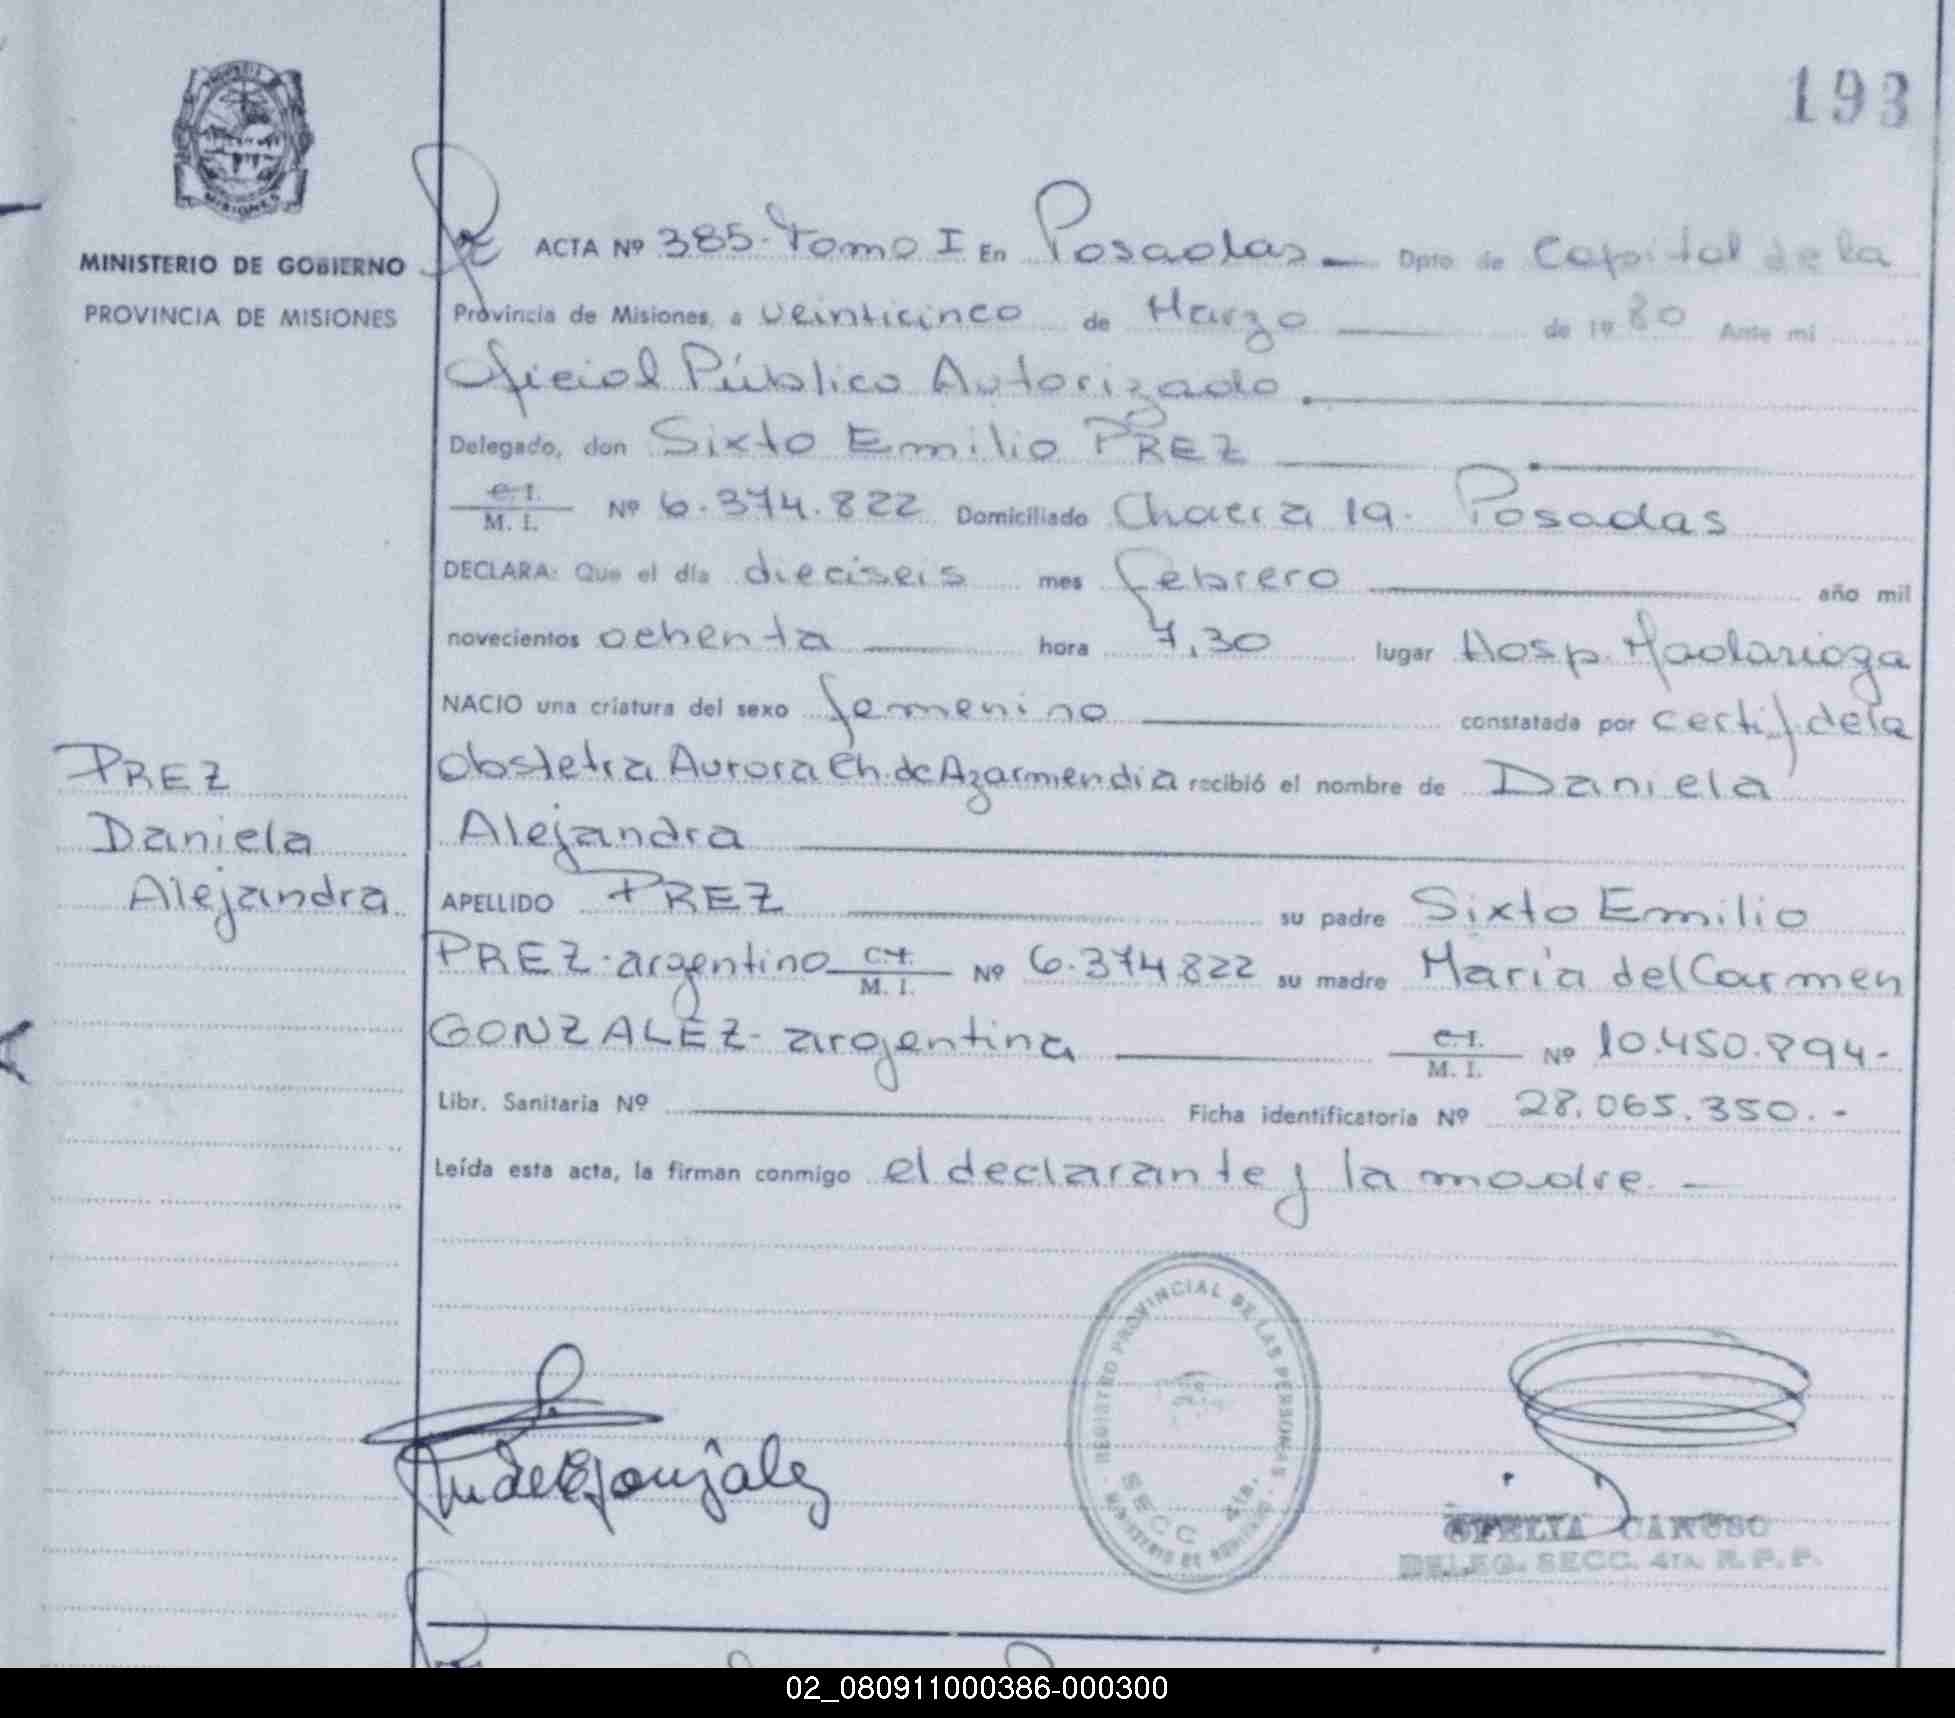 193
PROVINCIA
MISIONES
MINISTERIO DE GOBIERNO
PROVINCIA DE MISIONES
ACTA Nº 385- Tomo I En Posadas Dpto de Capital de la
Provincia de Misiones, a veinticinco de Marzo de 19 80 Ante mi
Oficial Público Autorizado
Delegado, don Sixto Emilio PREZ
C. I.
M. I. Nº 6.374.822 Domiciliado Chacra 19. Posadas
DECLARA: Que el día dieciseis mes febrero año mil
novecientos ochenta hora 7,30 lugar Hosp. Madariaga
NACIO una criatura del sexo femenino constatada por certif. de la
obstetra Aurora Ch. de Azarmendia recibió el nombre de Daniela
Alejandra
PREZ
Daniela
Alejandra
APELLIDO PREZ su padre Sixto Emilio
PREZ - argentino C. I.
M. I. Nº 6.374.822 su madre María del Carmen
GONZALEZ - argentina C. I.
M. I. Nº 10.450.894-
Libr. Sanitaria Nº Ficha identificatoria Nº 28.065.350.-
Leída esta acta, la firman conmigo el declarante y la madre. -
REGISTRO PROVINCIAL DE LAS PERSONAS
SECC 4ta.
MINISTERIO DE
OFELIA CARUSO
DELEG. SECC. 4TA. R. P. P.
02_080911000386-000300